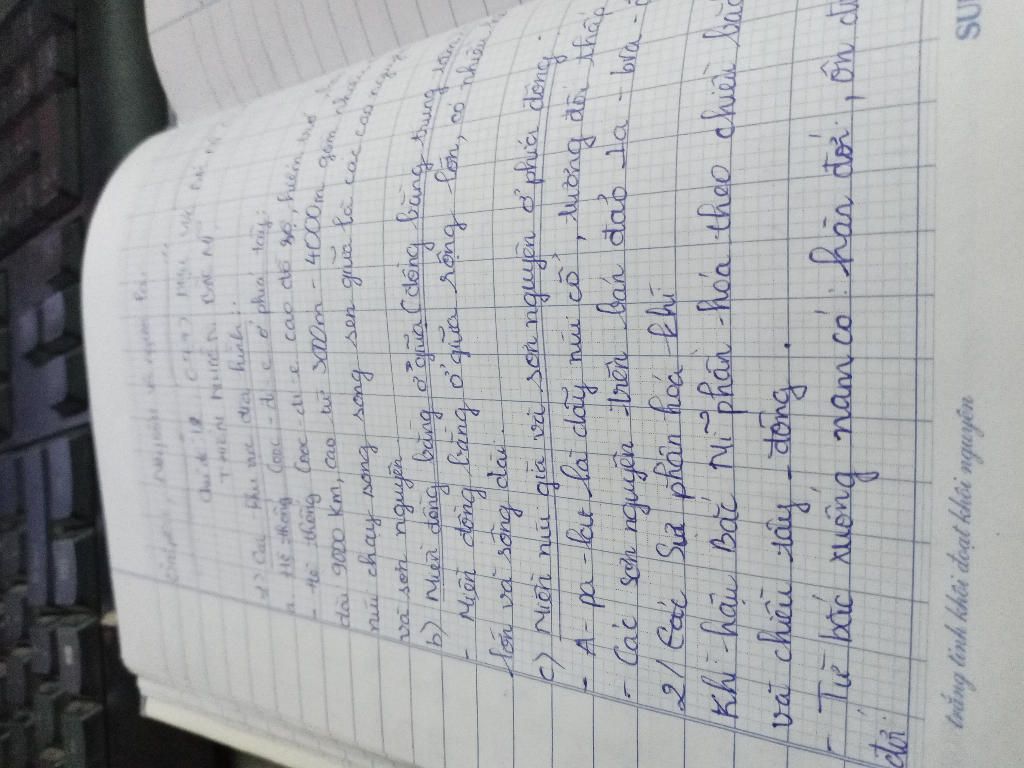 THIÊN NHIÊN BẮC MĨ
1) Các khu vực địa hình:
a. Hệ thống Cooc-di-e ở phía tây:
- Hệ thống Cooc-di-e cao đồ sộ, hiểm trở
dài 9000 km, cao từ 3000m - 4000m gồm nhiều
núi chạy song song xen giữa là các cao nguyên
và sơn nguyên
b) Miền đồng bằng ở giữa (đồng bằng trung tâm)
- Miền đồng bằng ở giữa rộng lớn, có nhiều
lớn và sông dài.
c) Miền núi già và sơn nguyên ở phía đông.
- A-pa-lat là dãy núi cổ, tương đối thấp
- Các sơn nguyên trên bán đảo La-bra-
2/ Các Sự phân hoá khí
Khí-hậu Bắc Mĩ phân-hóa theo chiều bắc
và chiều tây-đông.
- Từ bắc xuống nam có: hàn đới, ôn đ
đới.
trắng tinh khôi đoạt khôi nguyên
SU